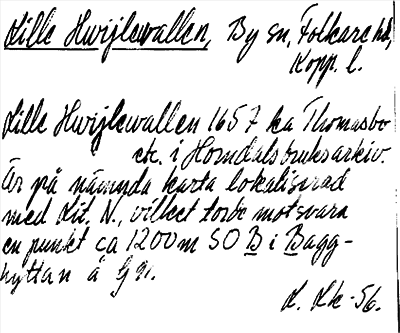 Lille Hwijlewallen, By sn, Folkare hd,
Kopp. l.
Lille Hwijlewallen 1657 ka Thomasbo
etc. i Horndalsbruksarkiv.
Är på nämnda karta lokaliserad
med Lit. N., vilket torde motsvara
en punkt ca 1200 m SO B i Bagg-
hyttan å
L. Lk -56.